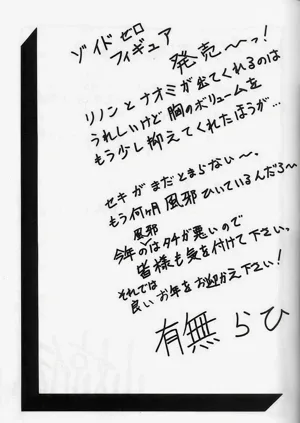 ゾイドゼロ
フィギュア
発売～っ!
リノンとナオミが出てくれるのは
うれしいけど胸のボリュームを
もう少し抑えてくれたほうが…
セキがまだとまらない～。
もう何ヶ月風邪ひいているんだろ～
今年の風邪はタチが悪いので
皆様も気を付けて下さい。
それでは
良いお年をお迎かえ下さい!
有無らひ